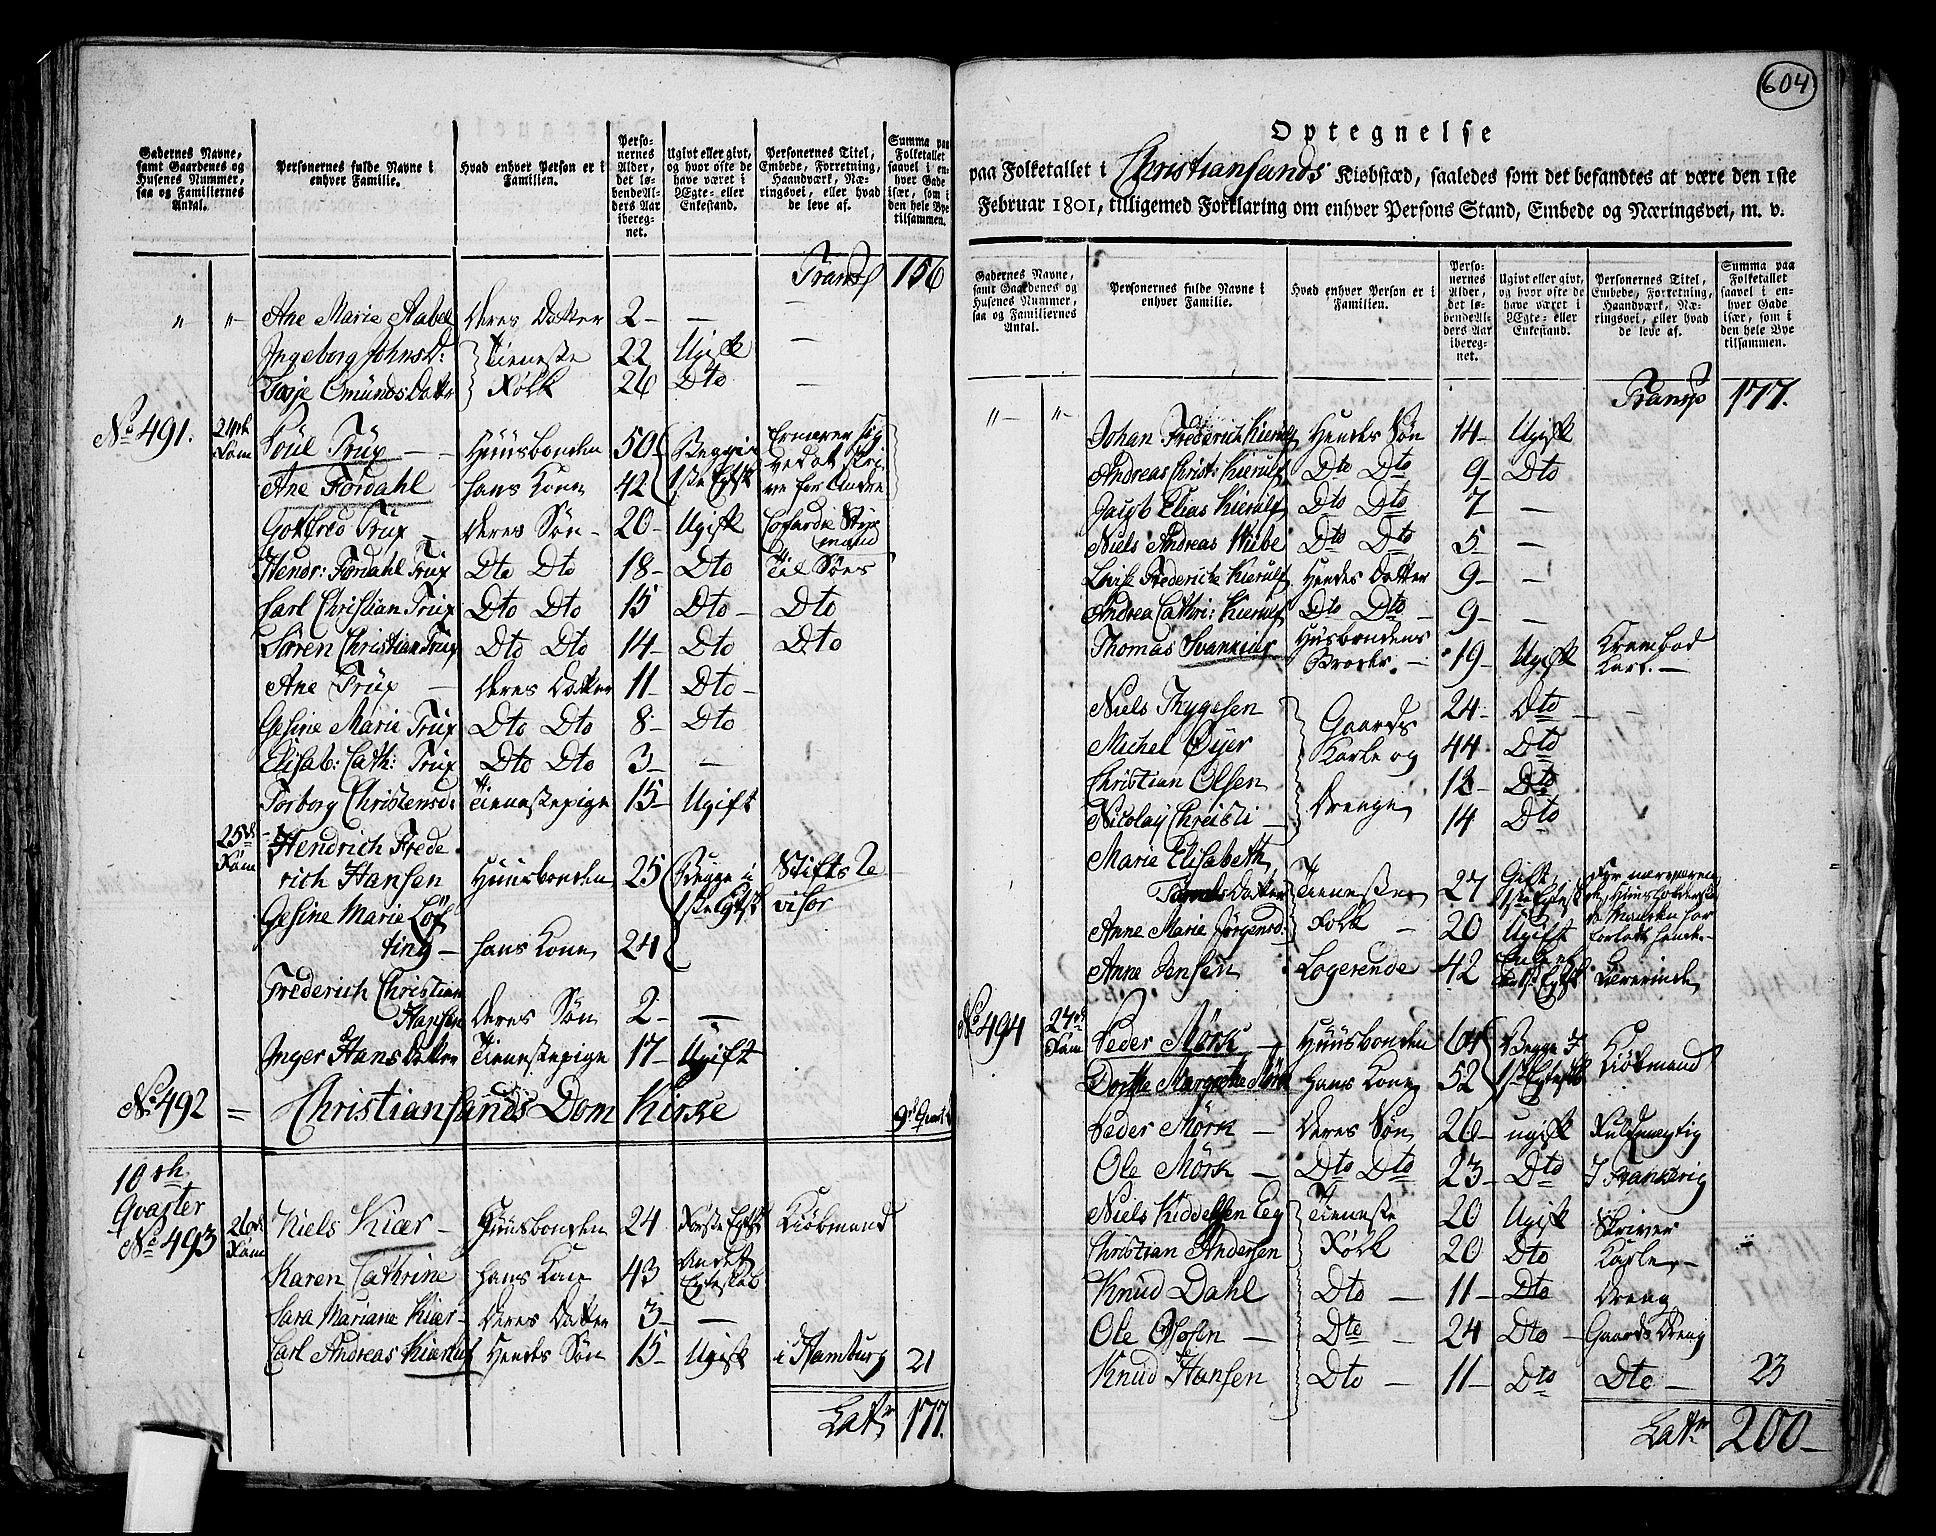 Gadernes Navne, samt Gaardenes og Husenes Nummer, saa og Familiernes Antal.
Personernes fulde Navne i enhver Familie.
Hvad enhver Person er i Familien.
Personernes Alder, det løbende Alders Aar iberegnet.
Ugivt eller givt, og hvor ofte de have været i Ægte- eller Enkestand.
Personernes Titel, Embede, Forretning, Haandværk, Næringsvei, eller hvad de leve af.
Summa paa Folketallet saavel i enhver Gade især, som i den hele Bye tilsammen.
Transp 156
" " Ane Marie Aabel deres Datter 2 — — —
Ingeborg JohnsD: Tieneste 22 Ugift —
Omunds Datter Folk 26 Dto —
No 491. 24de Fam Poul Trüp — Huusbonden 50 Begge i Ernærer sig
ved at skri
Ane Fordahl hans Kone 42 1ste Egtsk ve for Andre
Gotfred Trüp deres Søn 20 Ugift Cofardie Styr
mand
Hendr: Fordahl Trüp Dto Dto 18 Dto Til Søes
Carl Christian Trüp Dto Dto 15 Dto Dto
Søren Christian Trüp Dto Dto 14 Dto Dto
Ane Trüp — deres Datter 11 Dto
Gesine Marie Trüp Dto Dto 8 Dto
Elisab: Cath: Trüp Dto Dto 3 —
Torborg Christensd: Tienestepige 15 Ugift
25de Fam Hendrich Frede
rich Hansen Huusbonden 25 Begge i Stifts Re
Gesine Marie Løf 1ste Egtsk visor
ting — hans Kone 24
Frederich Christian
Hansen deres Søn 2 —
Inger Hans Datter Tienestepige 17 Ugift
No 492 = Christiansands Dom Kirke
10de
Qvarter
No 493 26de Fam Niels Kiær — Huusbonden 24 Første Egtsk Kiøbmand
Karen Cathrine hans Kone 43 Andet
Egteskab
Sara Mariane Kiær deres Datter 3 —
Carl Andreas Kierulf Hendes Søn 15 Ugift i Hamburg 21
Latr 177.
604
Optegnelse
paa Folketallet i Christiansands Kiøbstæd, saaledes som det befandtes at være den 1ste
Februar 1801, tilligemed Forklaring om enhver Persons Stand, Embede og Næringsvei, m. v.
Gadernes Navne, samt Gaardenes og Husenes Nummer, saa og Familiernes Antal.
Personernes fulde Navne i enhver Familie.
Hvad enhver Person er i Familien.
Personernes Alder, det løbende Alders Aar iberegnet.
Ugivt eller givt, og hvor ofte de have været i Ægte- eller Enkestand.
Personernes Titel, Embede, Forretning, Haandværk, Næringsvei, eller hvad de leve af.
Summa paa Folketallet saavel i enhver Gade især, som i den hele Bye tilsammen.
" " Transp 177.
Johan Frederich Kierulf Hendes Søn 14 Ugift
Andreas Christ: Kierulf Dto Dto 9 Dto
Jacob Elias Kierulf Dto Dto 7 —
Niels Andreas Dto Dto 5 —
Lovise Frederiche Kierulf Hendes Datter 9 —
Andrea Cathri: Kierulf Dto Dto 9 —
Thomas Husbondens
Broder — 19 Ugift Krambod
Karl —
Niels Thygesen Gaards 24 Dto —
Michel Øyer Karle og 44 Dto
Christian Olsen 12 Dto
Nicolay Christi — Drenge 14 Dto
Marie Elisabeth
Datter Tieneste 27 Gift
1ste Egtesk
Anne Marie Jørgensd: Folk — 20 Ugift forladt hende
Anne Jensen Logerende 42 Lærerinde
No 494 27de Fam Peder Mørk — Huusbonden 64 Begge i Kiøbmand
Dorthe Margrethe Mørk hans Kone 52 1ste Egtesk
Peder Mørk — deres Søn 26 ugift Fuldmegtig
Ole Mørk — Dto Dto 23 Dto I Frankerig
Niels Kiddelsen Eeg Tieneste 20 Ugift Skriver
Christian Andersen Folk 20 Dto Karle
Knud Dahl Dto — 11 Dto Dreng
Ole Olsen — Dto 24 Dto Gaards Dreng
Knud Hansen Dto 11 Dto Dto — 23
Latr 200